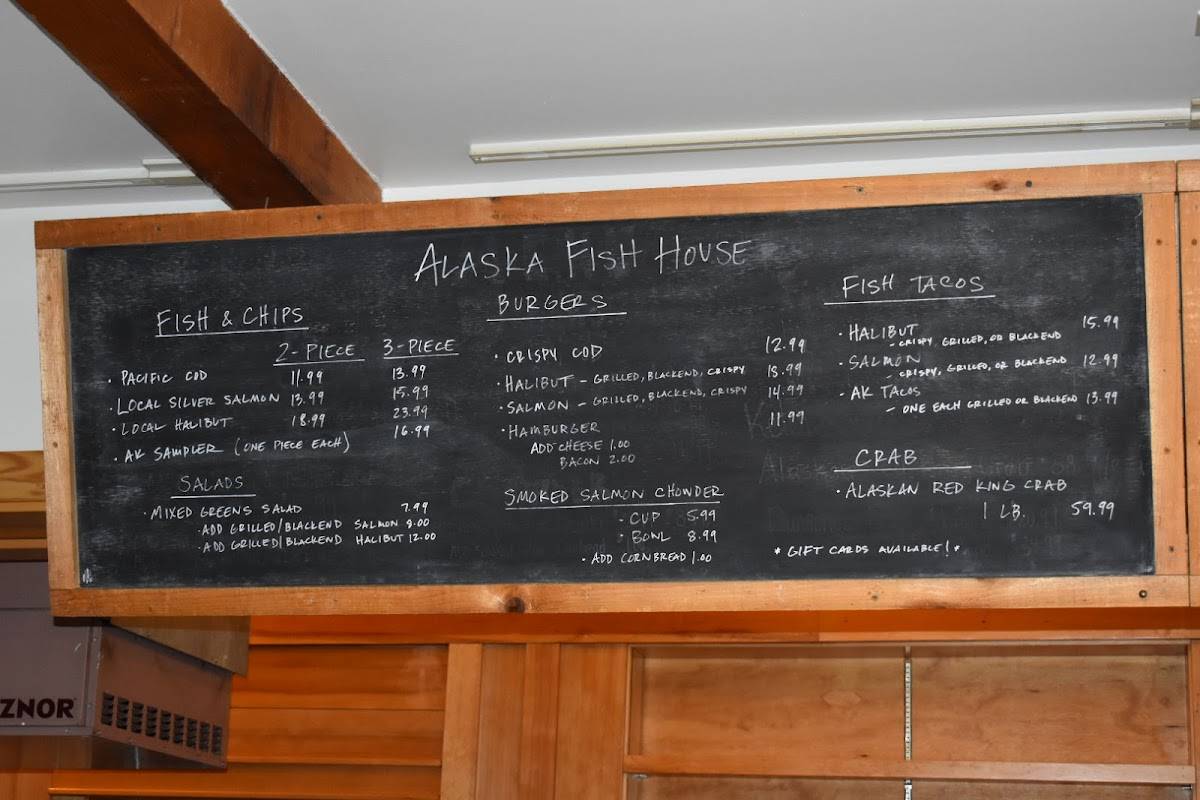 ALASKA FISH HOUSE
FISH & CHIPS
2-PIECE 3-PIECE
· PACIFIC COD 11.99 13.99
· LOCAL SILVER SALMON 13.99 15.99
· LOCAL HALIBUT 18.99 23.99
· AK SAMPLER (ONE PIECE EACH) 16.99
SALADS
· MIXED GREENS SALAD 7.99
· ADD GRILLED/BLACKEND SALMON 8.00
· ADD GRILLED/BLACKEND HALIBUT 12.00
BURGERS
· CRISPY COD 12.99
· HALIBUT - GRILLED, BLACKEND, CRISPY 18.99
· SALMON - GRILLED, BLACKEND, CRISPY 14.99
· HAMBURGER 11.99
ADD CHEESE 1.00
BACON 2.00
SMOKED SALMON CHOWDER
· CUP 5.99
· BOWL 8.99
· ADD CORNBREAD 1.00
FISH TACOS
· HALIBUT 15.99
- CRISPY, GRILLED, OR BLACKEND
· SALMON 12.99
- CRISPY, GRILLED, OR BLACKEND
· AK TACOS
- ONE EACH GRILLED OR BLACKEND 13.99
CRAB
· ALASKAN RED KING CRAB
1 LB. 59.99
* GIFT CARDS AVAILABLE! *
ZNOR